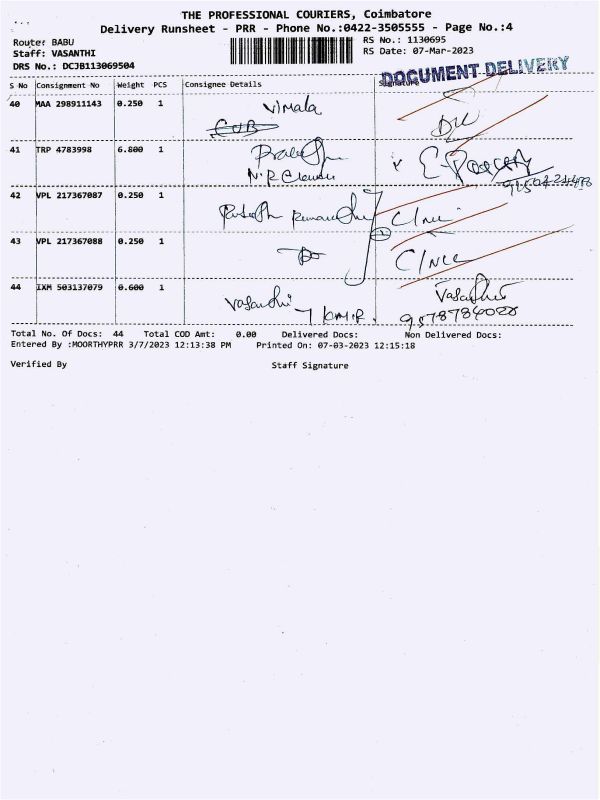 THE PROFESSIONAL COURIERS, Coimbatore
Delivery Runsheet - PRR - Phone No.:0422-3505555 - Page No.:4
Route: BABU
RS No.: 1130695
Staff: VASANTHI
RS Date: 07-Mar-2023
DRS No.: DCJB113069504
DOCUMENT DELIVERY
S No Consignment No Weight PCS Consignee Details Signature
40 MAA 298911143 0.250 1 Vimala
CUB
41 TRP 4783998 6.800 1
42 VPL 217367087 0.250 1
43 VPL 217367088 0.250 1
44 IXM 503137079 0.600 1 Vasanthi Vasanthi
9578784028
Total No. Of Docs: 44 Total COD Amt: 0.00 Delivered Docs: Non Delivered Docs:
Entered By :MOORTHYPRR 3/7/2023 12:13:38 PM Printed On: 07-03-2023 12:15:18
Verified By Staff Signature